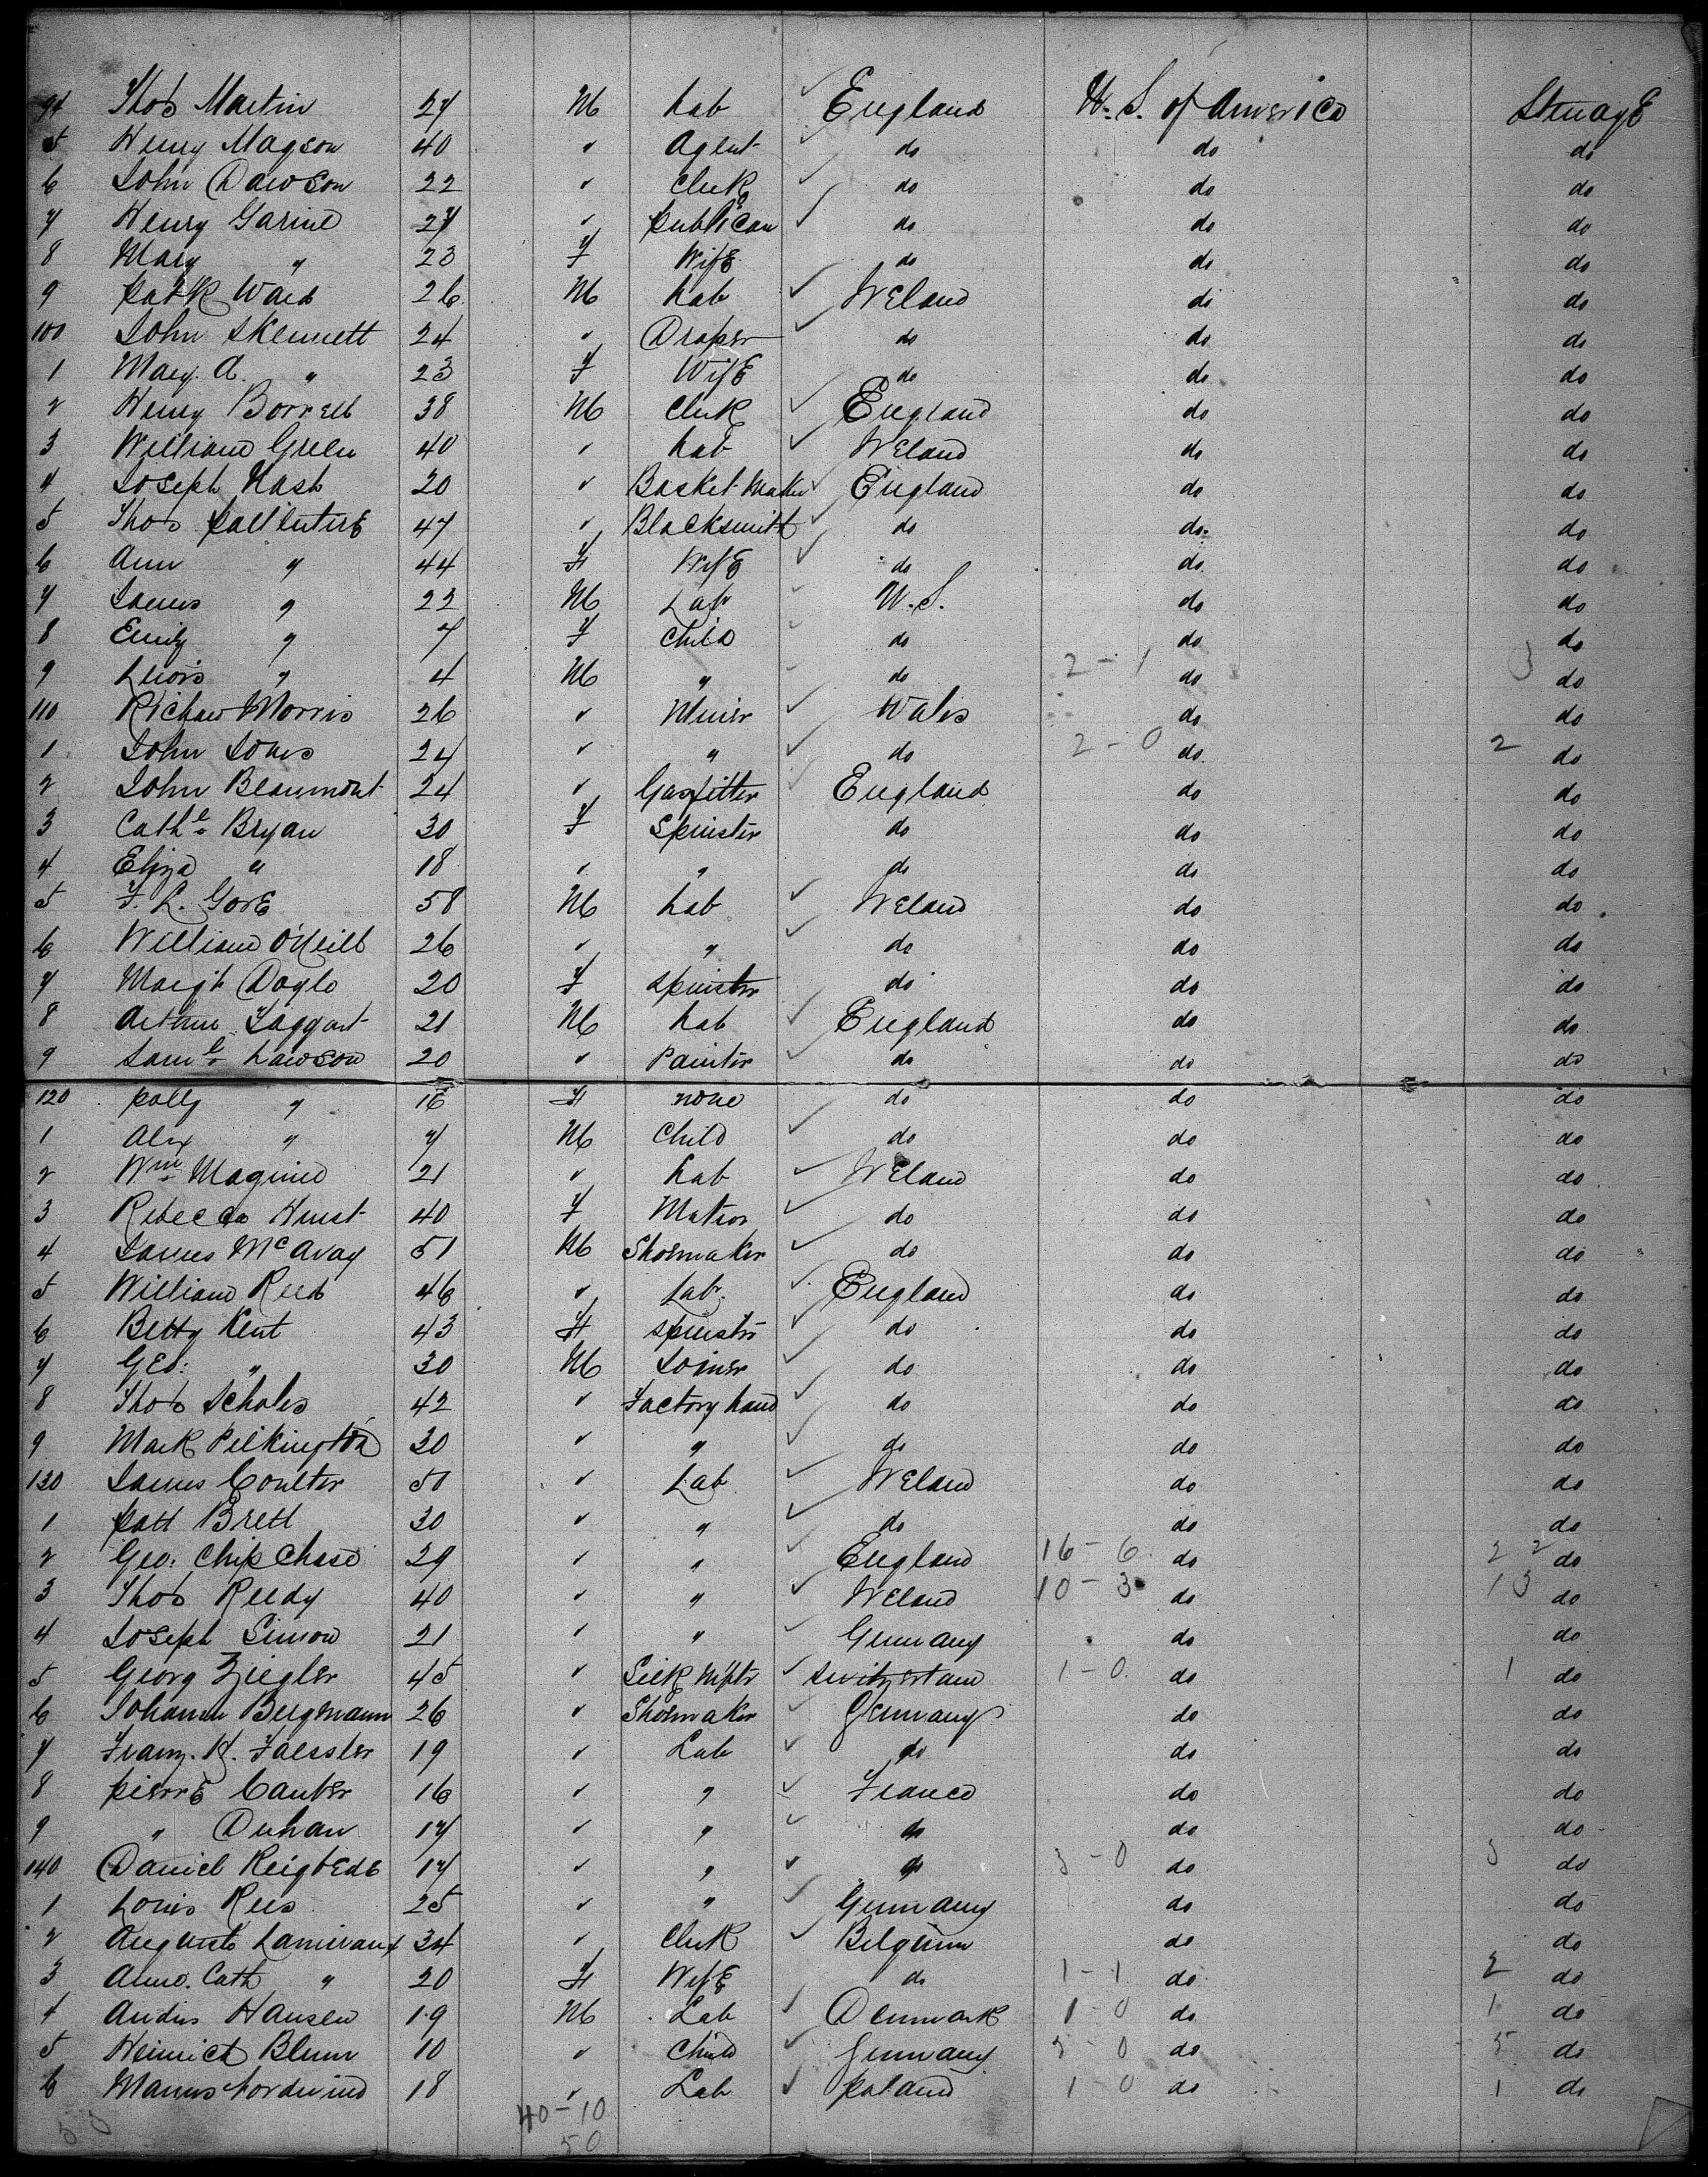 94 Thos Martin 27 M Lab England U. S. of America Steerage
5 Henry Magson 40 " Agent do do do
6 John Dawson 22 " Clerk do do do
7 Henry 27 " publican do do do
8 Mary " 23 F Wife do do do
9 Patk Ward 26 M Lab Ireland do do
100 John Skennett 24 " Draper do do do
1 Mary A. " 23 F Wife do do do
2 Henry Borrell 38 M Clerk England do do
3 William Green 40 " Lab Ireland do do
4 Joseph Nash 20 " Basket Maker England do do
5 Thos 47 " Blacksmith do do do
6 Ann " 44 F Wife do do do
7 James " 22 M Lab U.S. do do
8 Emily " 7 F Child do do do
9 " 4 M " do 2-1 do 3 do
110 Richard Morris 26 " Miner Wales do do
1 John Jones 24 " " do 2-0 do 2 do
2 John Beaumont 24 " Gasfitter England do do
3 Cathe Bryan 30 F Spinster do do do
4 Eliza " 18 " " do do do
5 F. L. Gore 58 M Lab Ireland do do
6 William O'Neill 26 " " do do do
7 Margt Doyle 20 F Spinster do do do
8 Arthur Taggart 21 M Lab England do do
9 Saml Lawson 20 " Painter do do do
120 Polly " 16 F none do do do
1 Alex " 7 M Child do do do
2 Wm Maguire 21 " Lab Ireland do do
3 Rebecca Hurst 40 F Matron do do do
4 James McAvay 51 M Shoemaker do do do
5 William Reed 46 " Lab England do do
6 Betty Kent 43 F Spinster do do do
7 Geo: " 30 M Joiner do do do
8 Thos Scholes 42 " Factory hand do do do
9 Mark Pilkington 30 " " do do do
130 James Coulter 50 " Lab Ireland do do
1 Patt Brett 30 " " do do do
2 Geo: Chip Chase 29 " " England 16-6 do 22 do
3 Thos Reedy 40 " " Ireland 10-3 do 13 do
4 Joseph Simon 21 " " Germany do do
5 Georg Ziegler 45 " Silk Mftr Switzerland 1-0 do 1 do
6 Johann Bergmann 26 " Shoemaker Germany do do
7 Franz. K. Faessler 19 " Lab do do do
8 Pierre Cauber 16 " " France do do
9 " Duhau 17 " " do do do
140 Daniel 17 " " do 3-0 do 3 do
1 Louis Rees 25 " " Germany do do
2 Auguste 34 " Clerk Belgium do do
3 Anne. Cath " 20 F Wife do 1-1 do 2 do
4 Andrs Hansen 19 M Lab Denmark 1 0 do 1 do
5 Heinrich Blum 10 " Child Germany 5 0 do 5 do
6 18 " Lab Poland 1 0 do 1 do
50 40-10
50